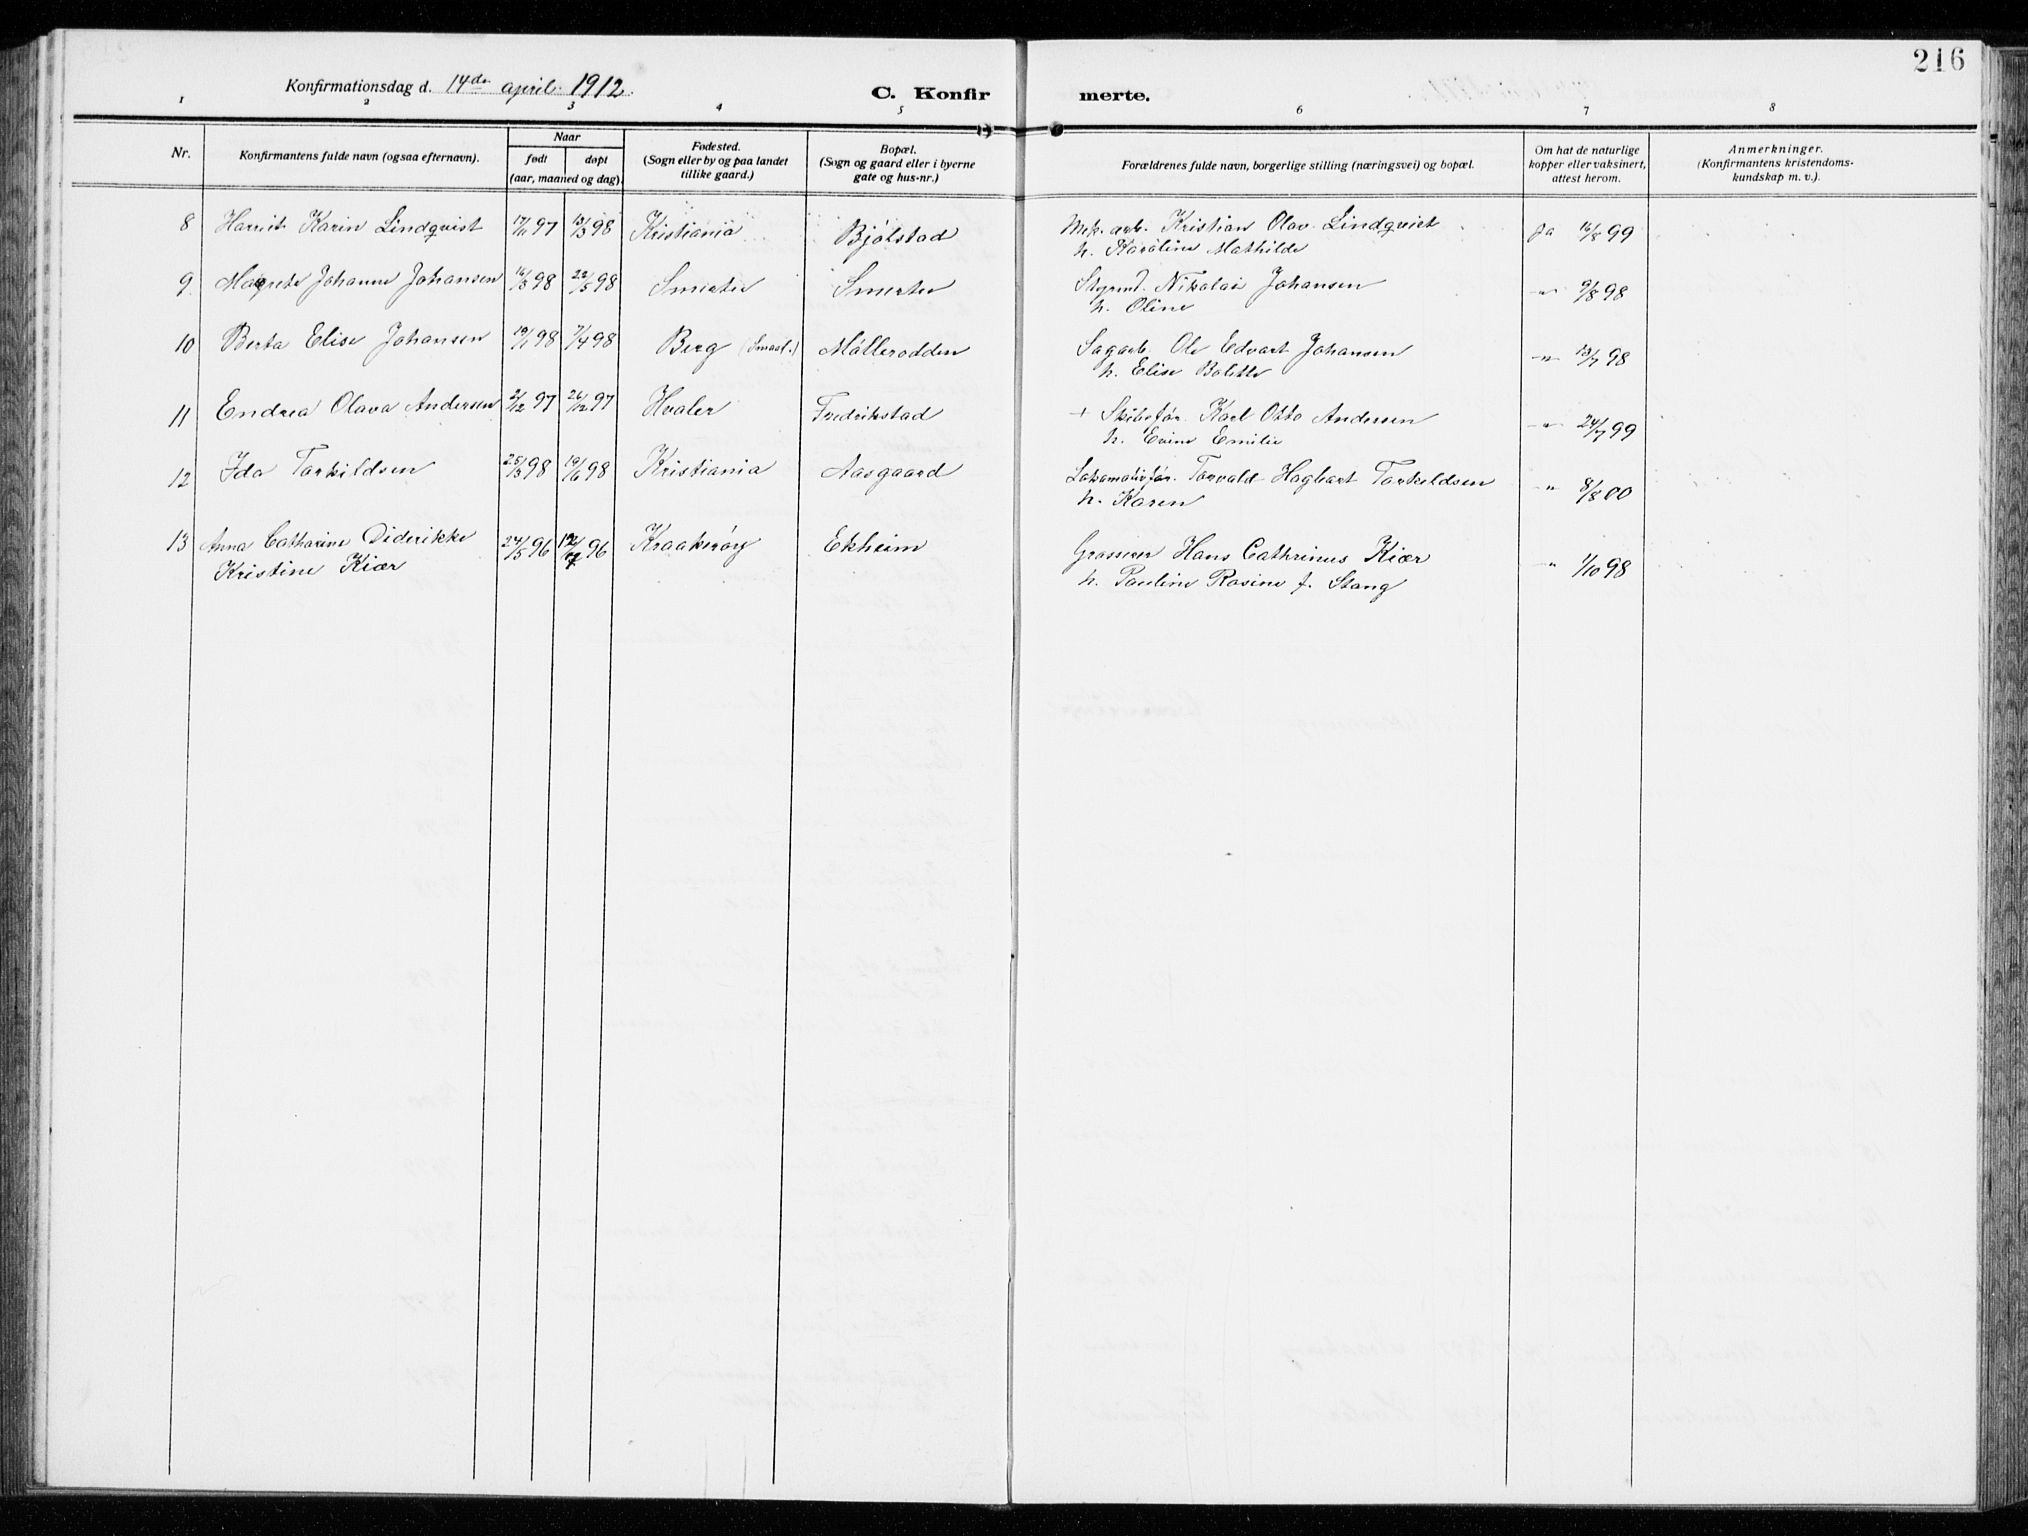 216
Konfirmationsdag d. 14de april 1912. C. Konfir merte.
1 2 3 4 5 6 7 8
Nr. Konfirmantens fulde navn (ogsaa efternavn). Naar født døpt (aar, maaned og dag). Fødested. (Sogn eller by og paa landet tillike gaard.) Bopæl. (Sogn og gaard eller i byerne gate og hus-nr.) Forældrenes fulde navn, borgerlige stilling (næringsvei) og bopæl. Om hat de naturlige kopper eller vaksinert, attest herom. Anmerkninger. (Konfirmantens kristendoms-kundskap m. v.).
8 Harriet Karin Lindqvist 17/11 97 13/3 98 Kristiania Bjølstad Mek. arb. Kristian Olav Lindqvist ja 16/8 99
h. Karoline Mathilde
9 Magrete Johanne Johansen 16/3 98 22/5 98 Smertu Smertu Styrmd. Nikolai Johansen -"- 9/8 98
h. Oline
10 Berta Elise Johansen 19/1 98 7/4 98 Berg (Smaal.) Møllerodden Sagarb. Ole Edvart Johansen -"- 13/7 98
h. Elise Bolette
11 Endrea Olava Andersen 2/12 97 26/12 97 Hvaler Fredrikstad + Skibsfør. Karl Otto Andersen -"- 24/7 99
h. Evine Emilie
12 Ida Torkildsen 25/3 98 19/6 98 Kristiania Aasgaard Lokomotivfør. Torvald Hagbart Torkildsen -"- 8/8 00
h. Karen
13 Anna Catharine Diderikke 24/5 96 96 Kraakerøy Ekheim Grosserer Hans Cathrinus Kiær " 1/10 98
Kristine Kiær h. Pauline Rosine f. Stang